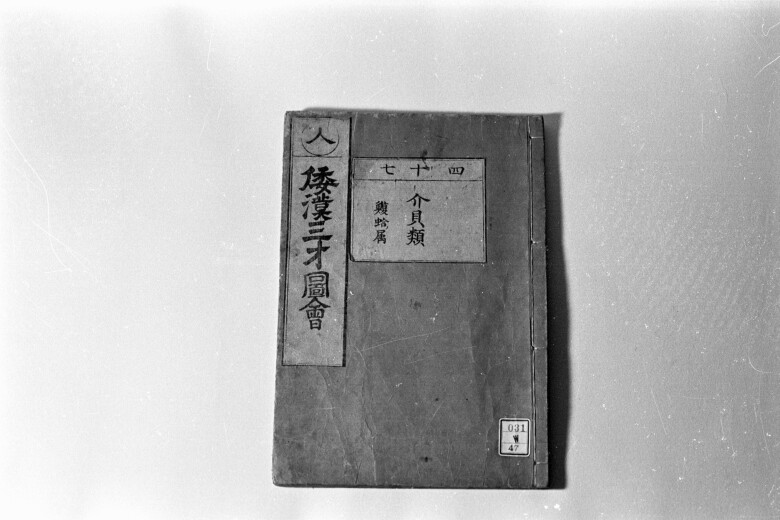 人
倭漢三才圖會
四十七
介貝類
鰒蛤属
031
W
47